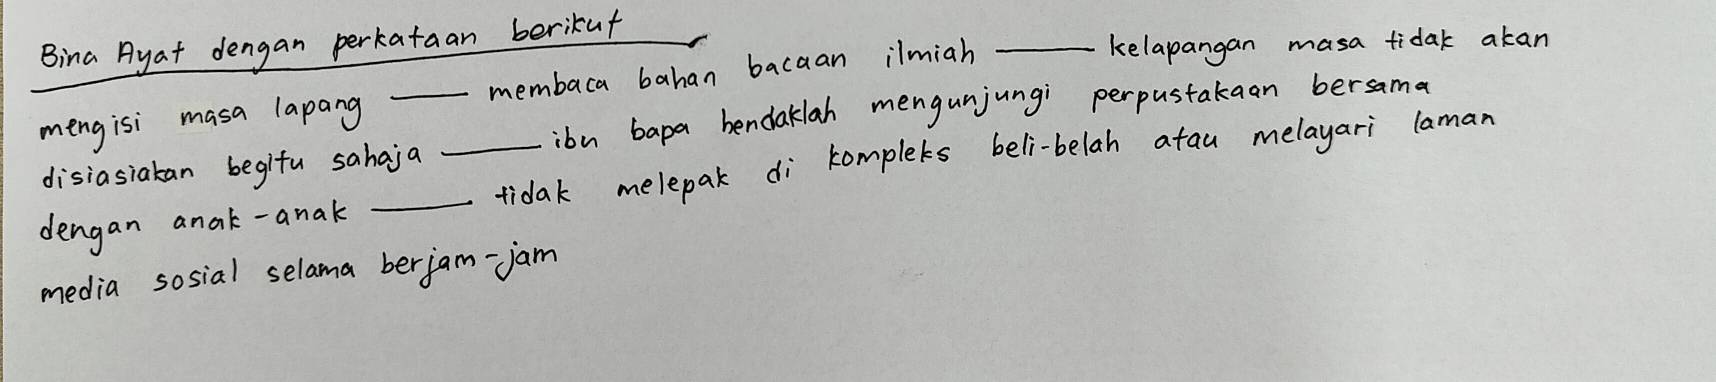 Bina Ayat dengan perkataan berikut
mengisi masa lapang ____ membaca bahan bacaan ilmiah ____ kelapangan masa tidak akan
disiasiakan begitu sahaja ____ ibu bapa hendaklah mengunjungi perpustakaan bersama
dengan anak-anak ____ tidak melepak di kompleks beli-belah atau melayari laman
media sosial selama berjam-jam